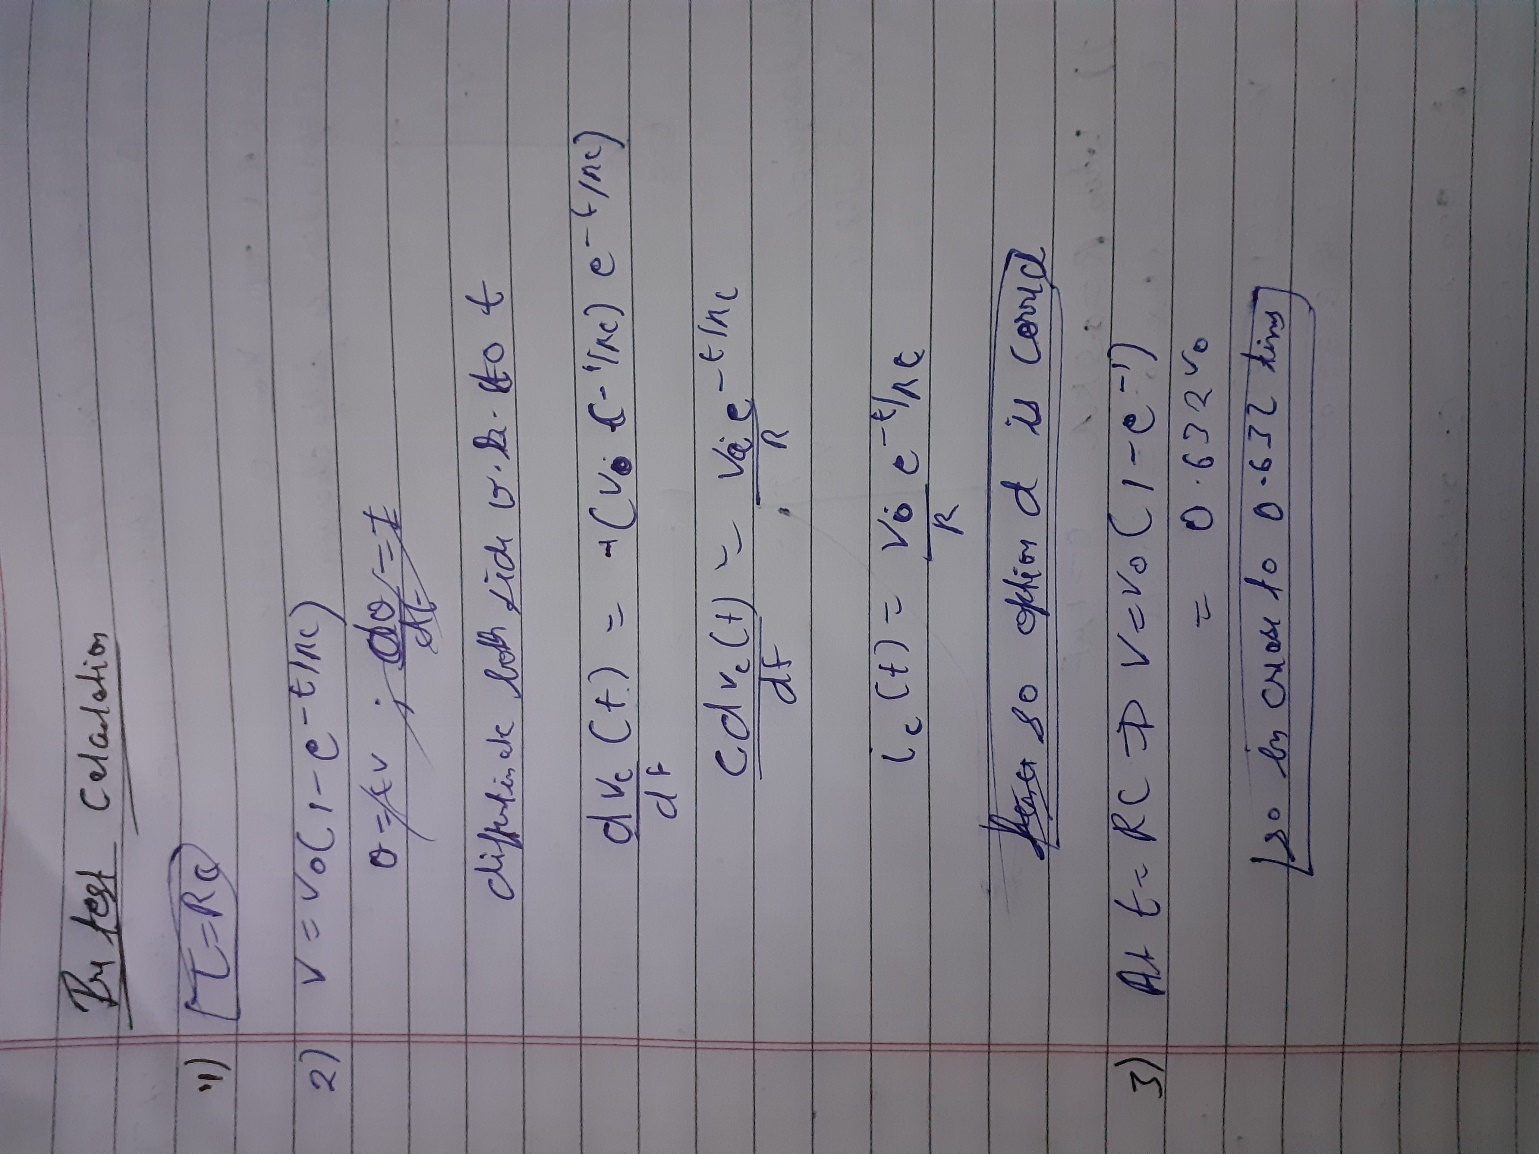 Pre test Calculation
1) τ = RC
2) V = V₀(1-e^-t/RC)
differentiate both side w.r. to t
dVc/dt (t) = -(V₀ (-1/RC) e^-t/RC)
C dVc(t)/dt = V₀/R e^-t/RC
ic(t) = V₀/R e^-t/RC
so option d is correct
3) At t = RC ⇒ V = V₀(1-e^-1)
= 0.632 V₀
so to 0.632 times